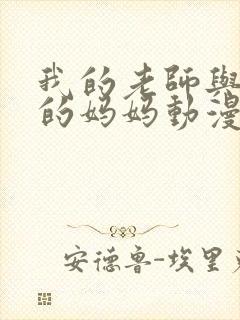 我的老師與
的妈妈動漫
安德鲁-埃里